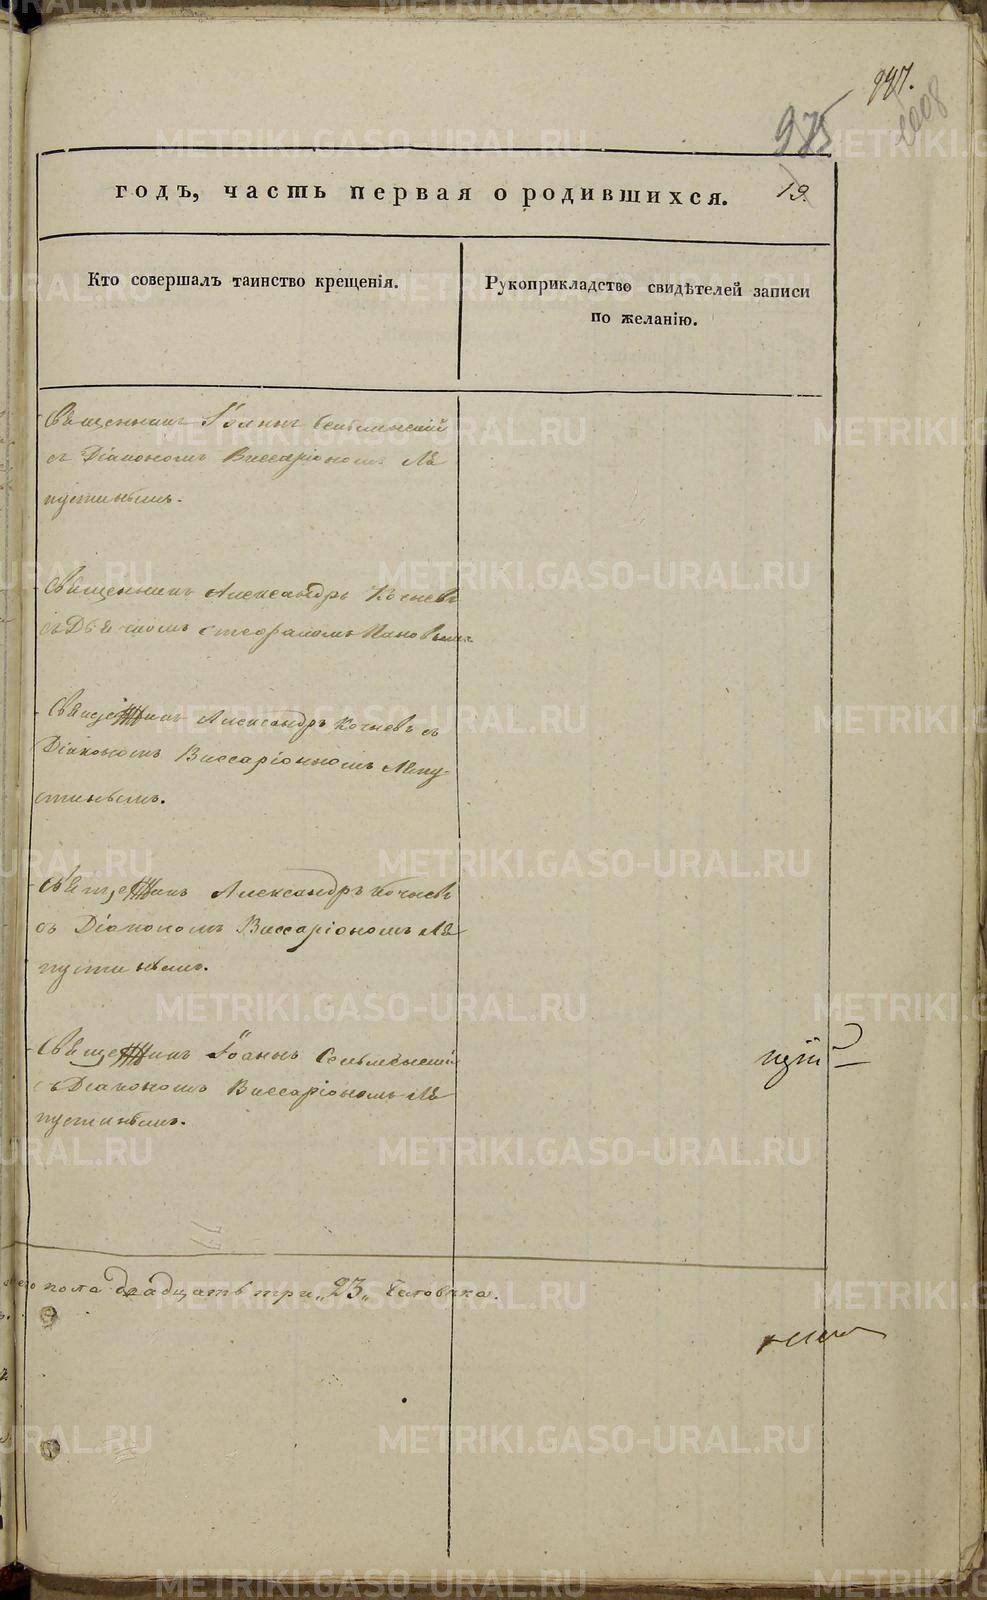 997.
1008
975
годъ, часть первая о родившихся. 19.
Кто совершалъ таинство крещенія.
Рукоприкладство свидѣтелей записи
по желанію.
Священникъ Іоаннъ
съ Діакономъ Виссаріономъ Ла
пустинымъ.
Священникъ Александръ Кочневъ
съ Дьячкомъ Пановымъ
Священникъ Александръ Кочневъ съ
Діакономъ Виссаріономъ Лапу
стинымъ.
Священникъ Александръ Кочневъ
съ Діакономъ Виссаріономъ Ла
пустинымъ.
Священникъ Іоаннъ
съ Діакономъ Виссаріономъ Ла
пустинымъ.
пола двадцать три „23„ Человѣка.
METRIKI.GASO-URAL.RU